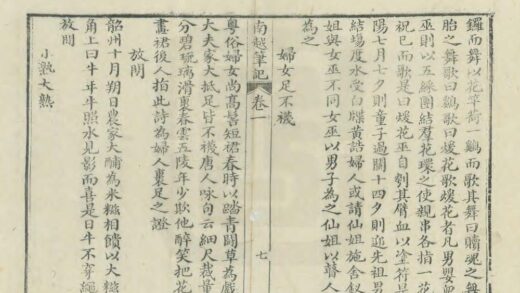 鑼而舞以花竿荷一鷄而歌其舞曰贖魂之舞
胎之舞歌曰鷄歌曰煖花歌煖花者凡男嬰兒
巫則以五線團結羣花環之使親串各指一花
祝巳而歌是曰煖花巫自刲其臂血以塗符是
陽七月七夕則童子過關十四夕則迎先祖男
結場度水受白牒黃誥婦人或請仙姐施舍釵
姐與女巫不同女巫以男子為之仙姐以瞽人
為之
婦女足不襪
南越筆記
卷一
七
粵俗婦女尚高髻短裙春時以踏青鬬草為戲
大夫家大抵足皆不襪唐人咏句云細尺裁量
分碧琉璃滑裹春雲五陵年少欺他醉笑把花
畫裙後人指此詩為婦人裹足之證
放閒
韶州十月朔日農家大酺為米糍相饋以大糍
角上曰牛年牛照水見影而喜是日牛不穿繩
放閒
小熟大熟